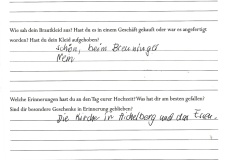 Wie sah dein Brautkleid aus? Hast du es in einem Geschäft gekauft oder war es angefertigt
worden? Hast du dein Kleid aufgehoben?
schön, beim Breuninger
Nein
Welche Erinnerungen hast du an den Tag eurer Hochzeit? Was hat dir am besten gefallen?
Sind dir besondere Geschenke in Erinnerung geblieben?
Die Kirche in Aichelberg und das Essen.